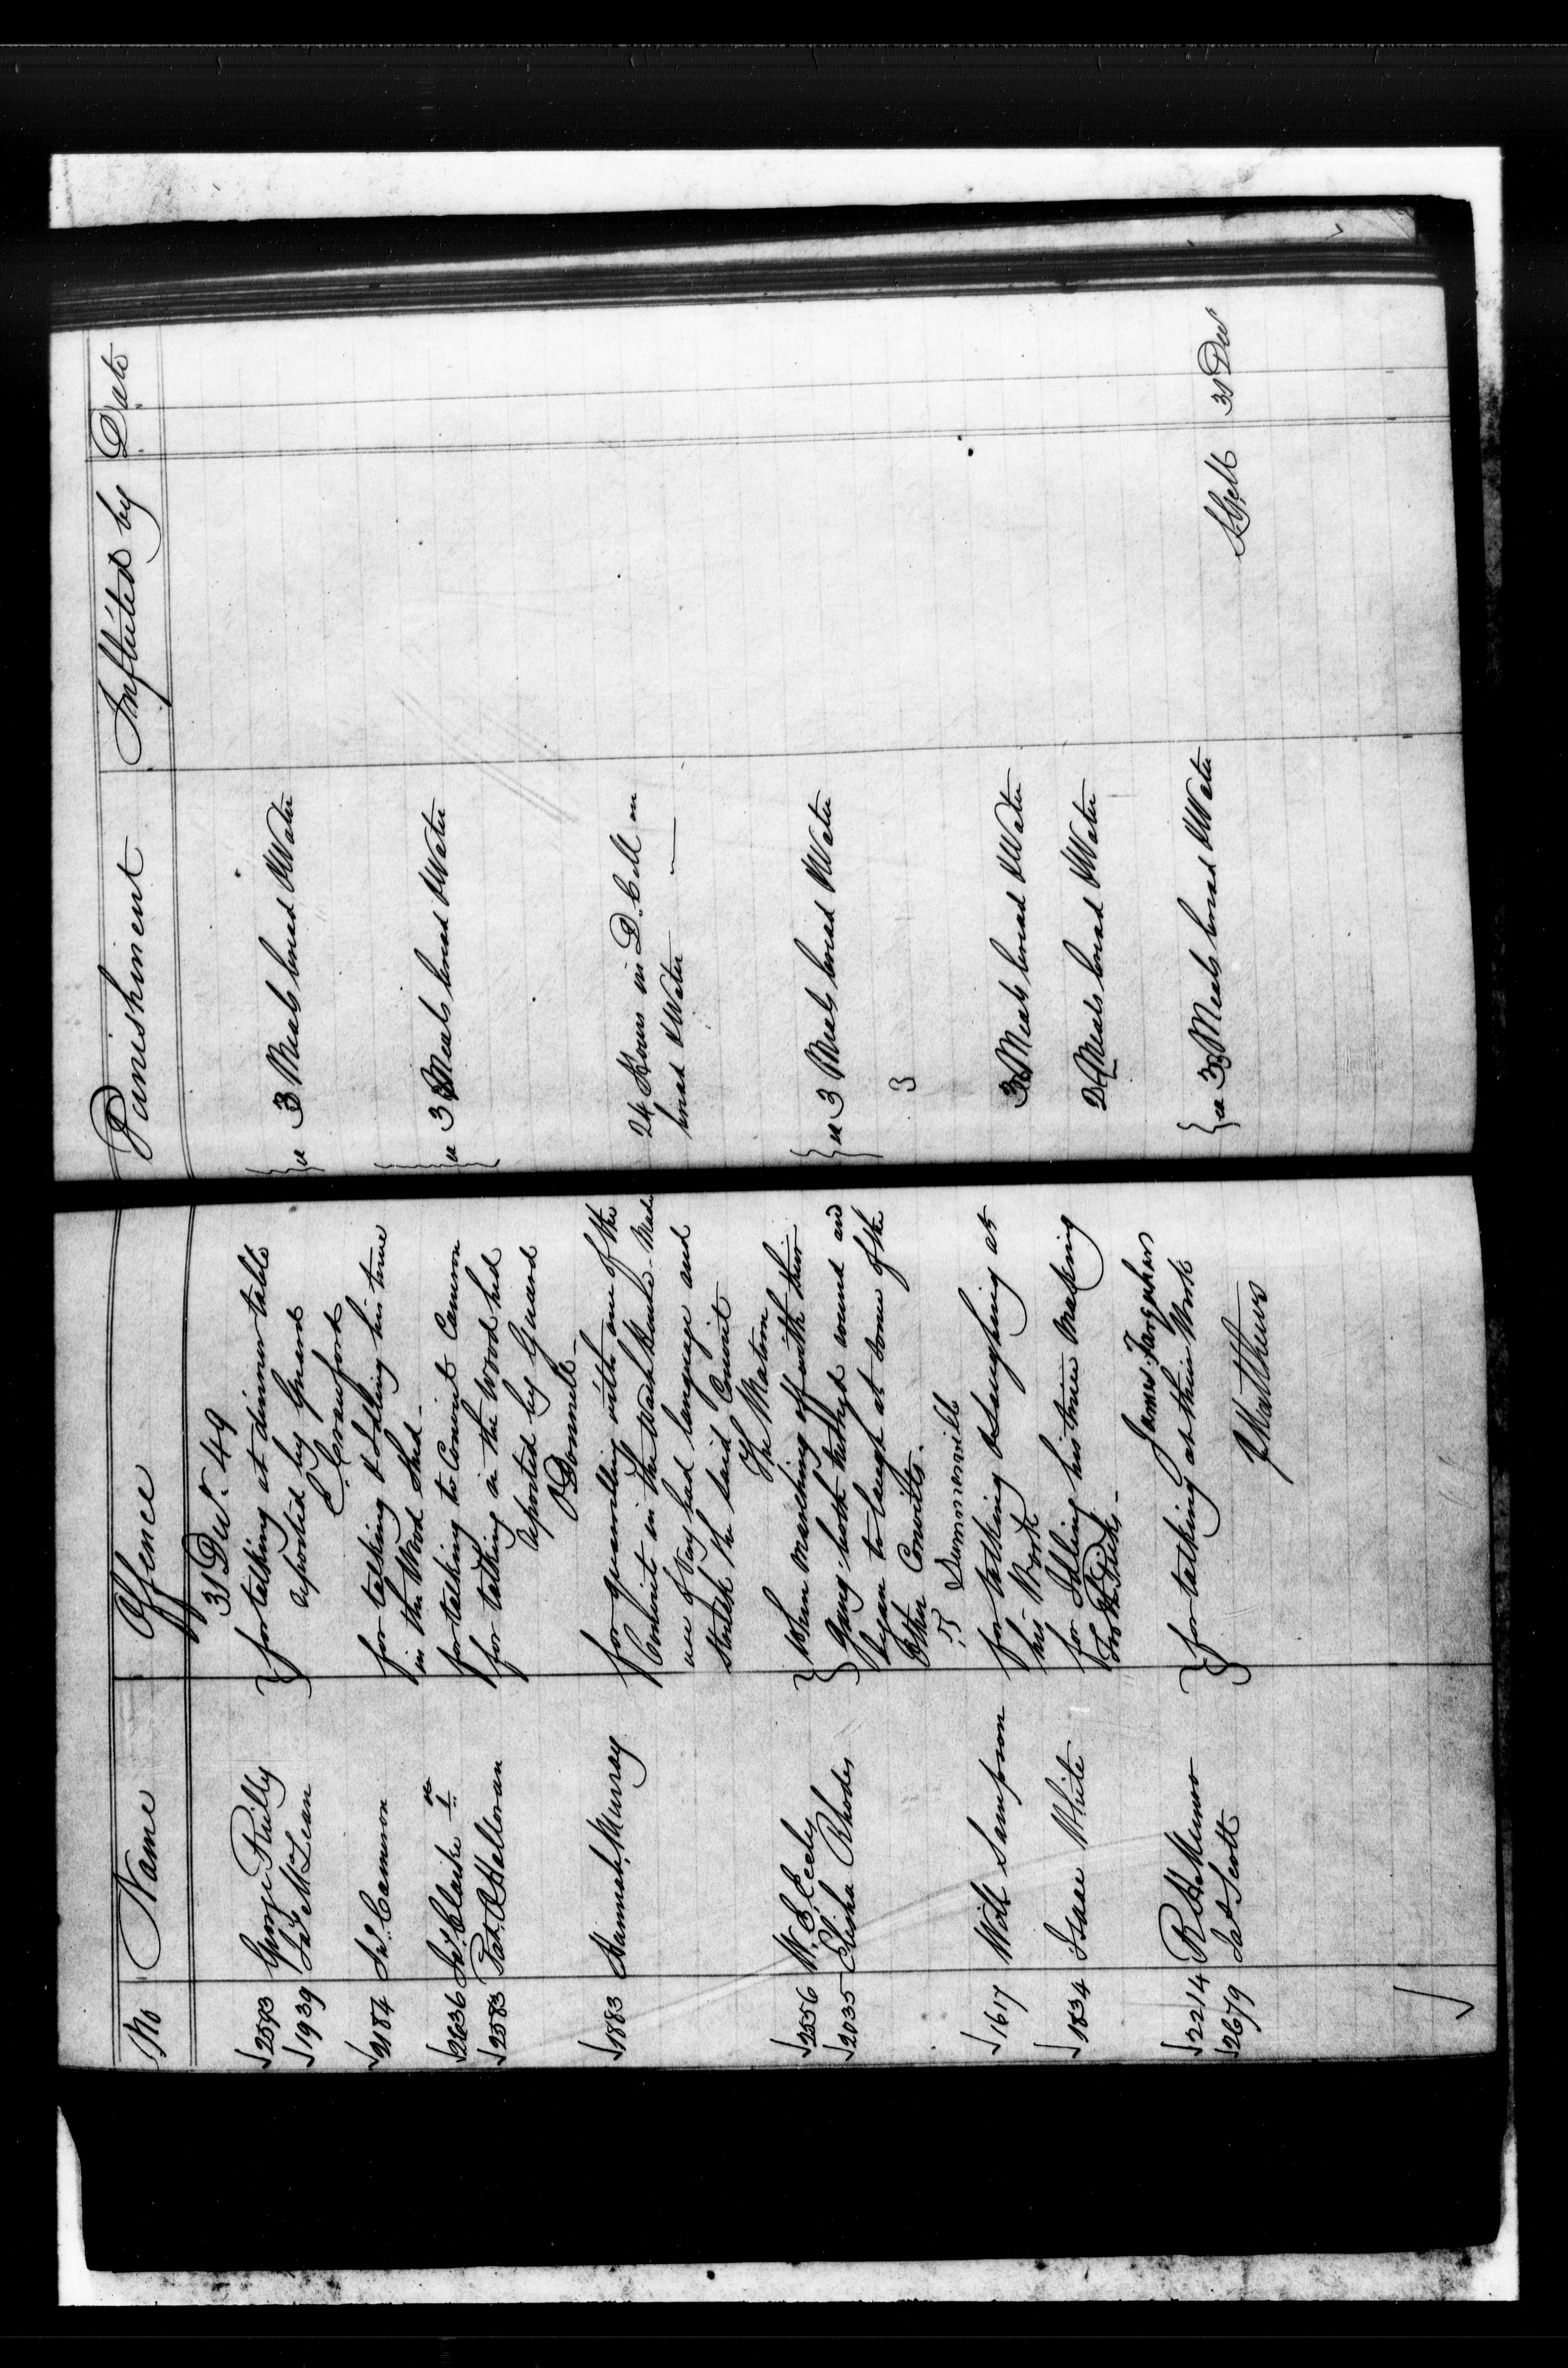 No Name Offence Punishment Inflicted by Date
31 Decr. 49
2593 George Reilly } for talking at dinner table } ea 3 Meals bread & Water
1939 Jas McLean reported by Guard
C. Crawford
2184 Jno. Cameron for talking & Idling his time
in the Wood Shed.
2636 Jno. Clarke 1st for talking to Convict Cameron ea 3 Meals bread & Water
2583 Pat. O'Halloran for talking in the Wood shed
reported by Guard
O'Donnell
1883 Hannah Murray for quarrelling with one of the 24 Hours in D. Cell on
Convict in the Wash House. Made bread & Water
use of very bad language and
the said Convict
The Matron
2556 W. E. Eccles } When Marching off with their } ea 3 Meals bread & Water
2035 Elisha Rhodes Gang both turned round and
began to laugh at some of the 3
other Convicts.
Drummond
1617 Wm Sampson for talking & laughing at 3 Meals bread & Water
his Work
1834 Isaac White for Idling his time Making 2 Meals bread & Water
James
2214 R. H. Munro } for talking at their Work } ea 3 Meals bread & Water
2679 Jas Scott 31 Dec
J Matthews